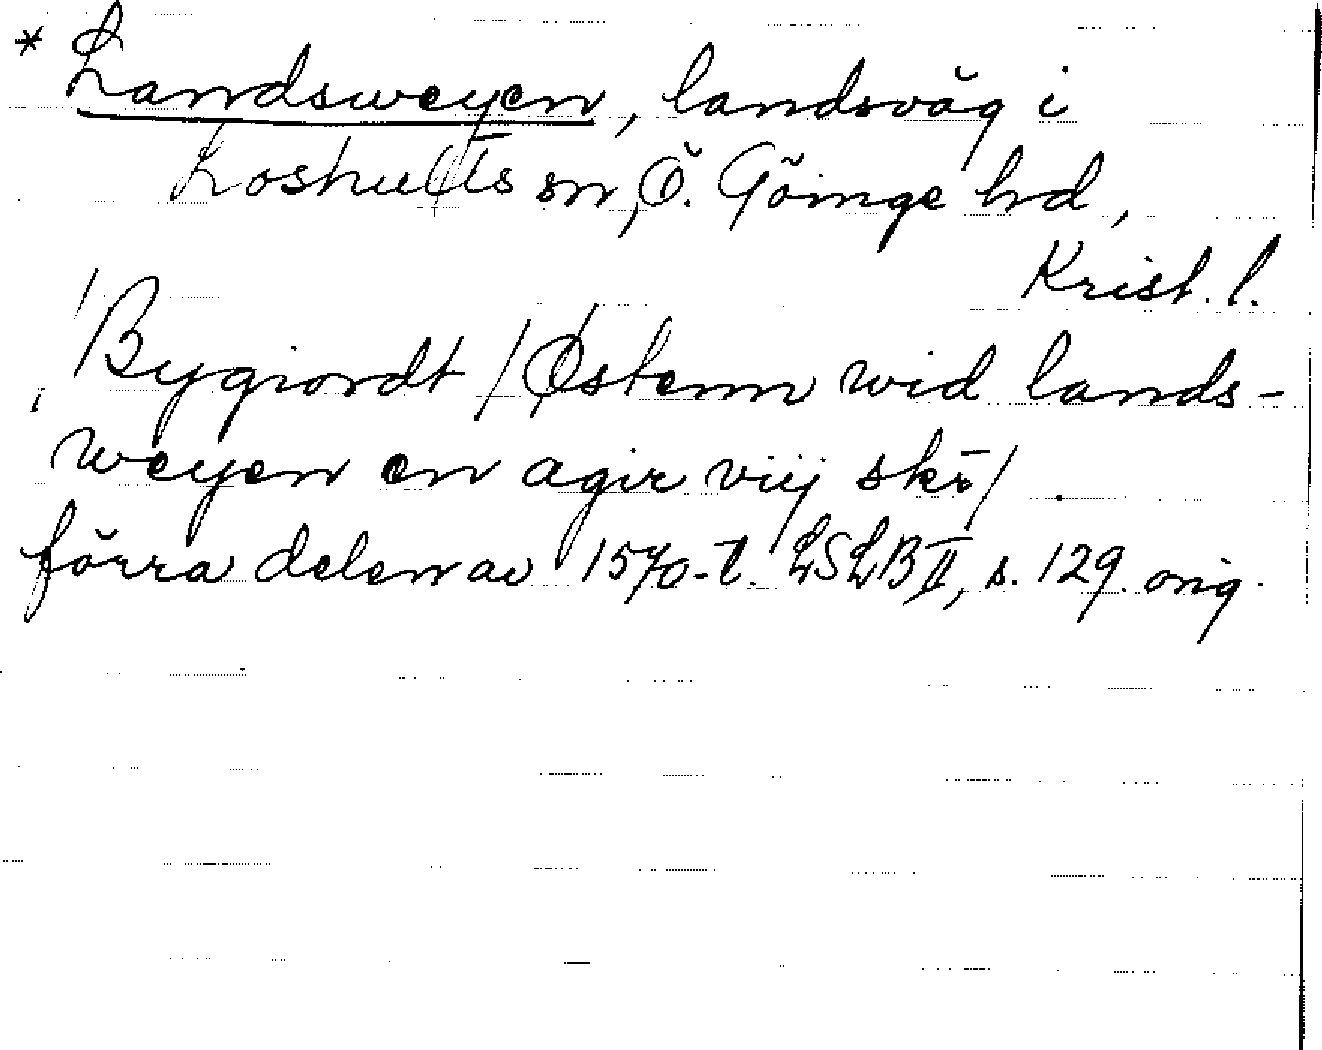 * Landsweyen, landsväg i
Loshults sn, Ö. Göinge hd,
Krist. l.
/Bygiordt / Østenn wid lands-
weyen en agir viij skr /
förra delen av 1570-t. LSLB II, s. 129 orig.